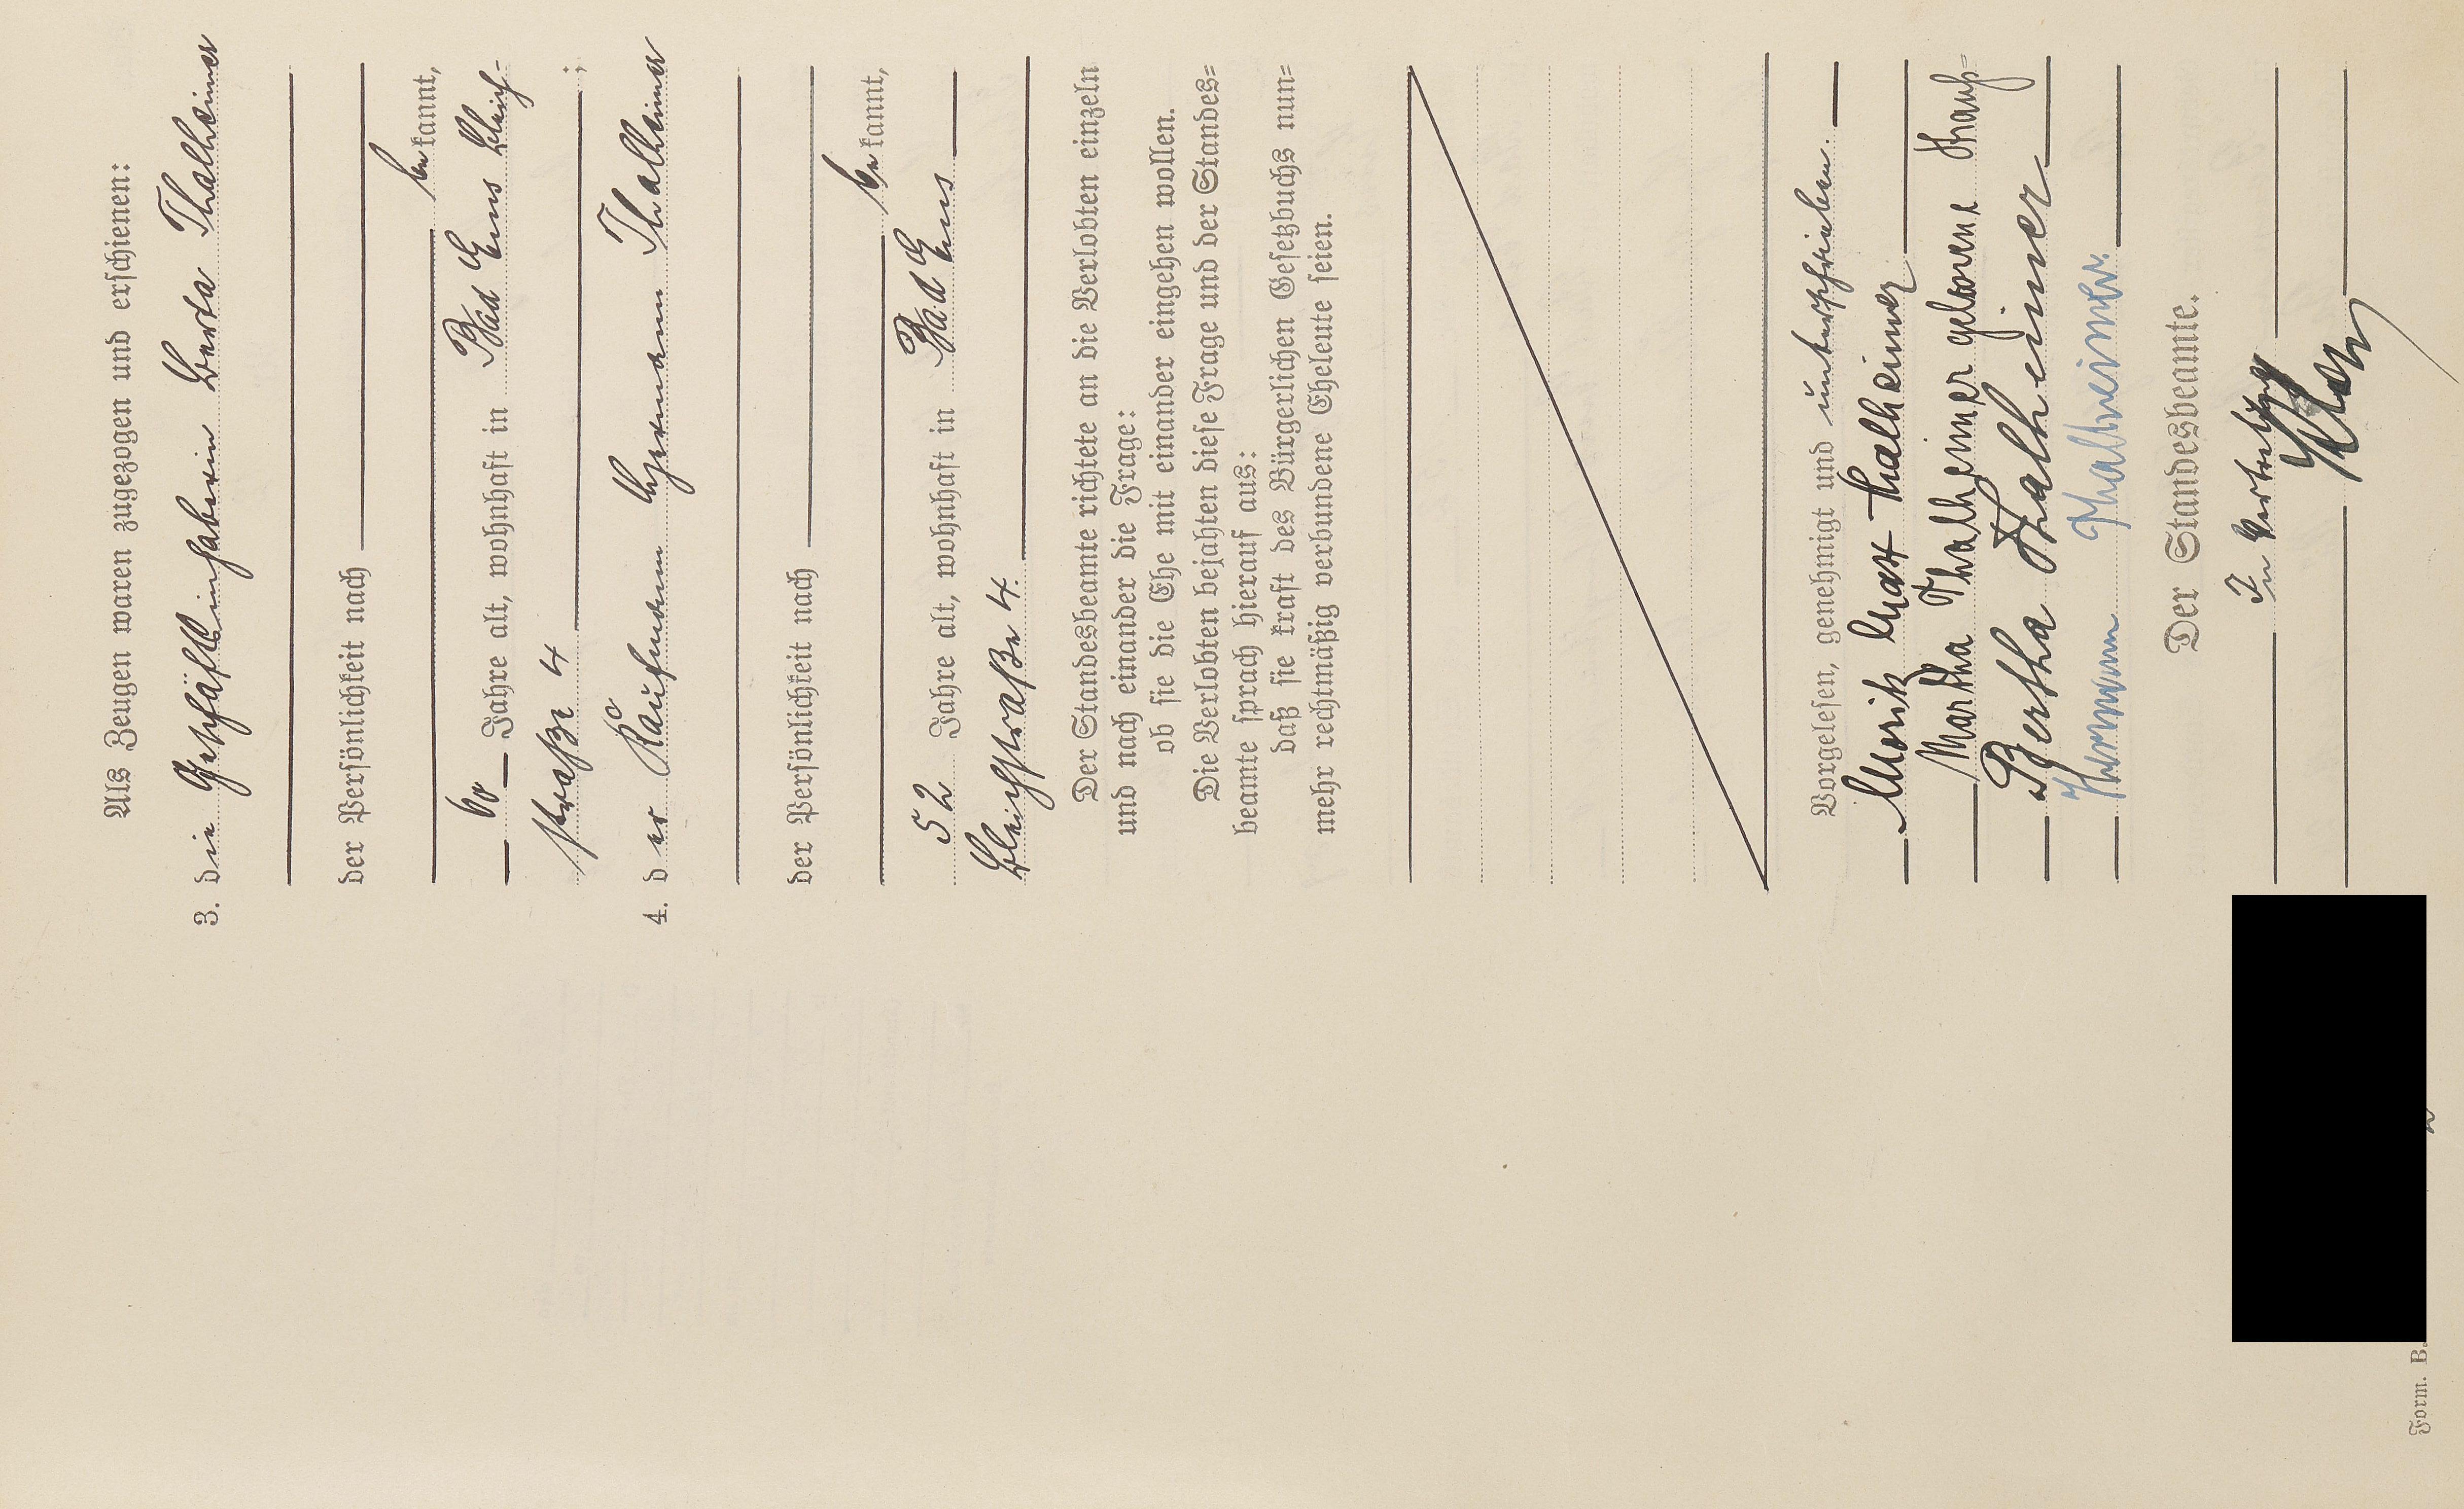 Als Zeugen waren zugezogen und erschienen:
3. die Geschäftsinhaberin Berta Thalheimer
der Persönlichkeit nach
bekannt,
60 Jahre alt, wohnhaft in Bad Ems Bleich-
straße 4 ;
4. der Kaufmann Hermann Thalheimer
der Persönlichkeit nach
bekannt,
52 Jahre alt, wohnhaft in Bad Ems
Bleichstraße 4.
Der Standesbeamte richtete an die Verlobten einzeln
und nach einander die Frage:
ob sie die Ehe mit einander eingehen wollen.
Die Verlobten bejahten diese Frage und der Standes=
beamte sprach hierauf aus:
daß sie kraft des Bürgerlichen Gesetzbuchs nun=
mehr rechtmäßig verbundene Eheleute seien.
Vorgelesen, genehmigt und unterschrieben.
Moritz Max Thalheimer
Martha Thalheimer geborene Strauß=
Bertha Thalheimer
Hermann Thalheimer.
Der Standesbeamte.
In Vertretung
Form. B.